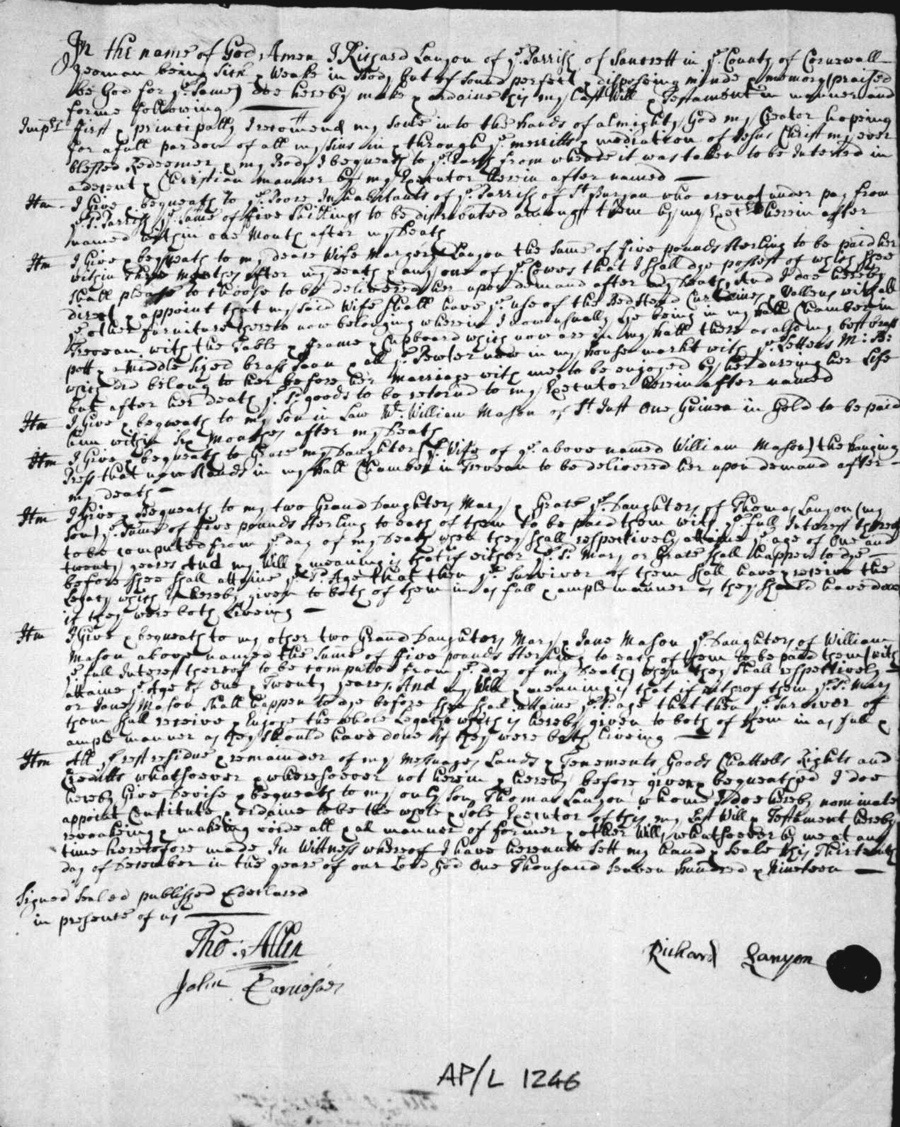 In the name of God Amen I Richard Lanyon of ye Parrish of Sancrett in ye County of Cornewall
Yeoman being Sick & Weake in Body but of sound perfect & disposing minde & memory (praised
be God for ye same) doe hereby make & ordaine this my Last Will & Testament in manner and
forme following
Imprs first & principally I recomend my soule into the hands of almighty God my Creator hoping
for a full pardon of all my sins in & through ye merritts & mediation of Jesus Christ my ever
blessed Redeemer & my Body I bequeath to ye Earth from whence it was taken to be Interred in
a decent & Christian manner by my Executor herein after named
Itm I Give & bequeath to ye Poore Inhabitants of ye Parrish of St Buryan who are not under pay from
ye sd Parrish ye sume of five Shillings to be distributed amongst them by my Exetr herein after
named within one Month after my Death
Itm I Give & bequeath to my deare Wife Margery Lanyon the sume of five pounds sterling to be paid her
within three monthes after my death & any one of ye Cowes that I shall dye possest of which shee
shall please to choose to be delivered her upon demand after my Death, And I doe hereby
direct & appoint that my said Wife shall have ye use of the Bedstead Curtaines & Vallens with all
ye other furniture thereto now belonging wherein I now usually lye being in my Hall Chamber in
Trevean, with the Table & frame & Cupboard which now are in my Hall there as also my best brass
pott & middle sized brass pann & all ye Pewter now in my house markt with ye Letters M: B:
which did belong to her before her marriage with me to be enjoyed by her during her Life
but after her Death ye sd goods to be returnd to my Executor herein after named
Itm I Give & bequeath to my Son in Law Mr William Mason of St Just One Guinea in Gold to be paid
him within six Monthes after my Death
Itm I Give & bequeath to Grace my Daughter (ye Wife of ye above named William Mason) the hanging
Press that now stands in my Hall Chamber in Trevean to be delivered her upon demand after
my death
Itm I Give & bequeath to my two Grand Daughters Mary & Grace ye Daughters of Thomas Lanyon (my
Son) ye sume of five pounds sterling to each of them to be paid them with ye full Interest thereof
to be computed from ye day of my Death when they shall respectively attaine ye age of One and
twenty yeares And my Will & meaning is that if either ye sd Mary or Grace shall happen to dye
before shee shall attaine ye sd Age that then ye Surviver of them shall have & receive the
Legacy which is hereby given to both of them in as full & ample manner as they should have done
if they were both Liveing
Itm I Give & bequeath to my other two Grand Daughters Mary & Jane Mason ye Daughters of William
Mason above named the sume of five pounds sterling to each of them to be paid them with
ye full Interest thereof to be computed from ye day of my Death when they shall respectively
attaine ye Age of One & Twenty yeares, And my Will & meaning is that if either of them ye sd Mary
or Jane Mason shall happen to dye before shee shall attaine ye sd age that then ye surviver of
them shall receive & Enjoye the whole Legacy which is hereby given to both of them in as full &
ample manner as they should have done if they were both liveing
Itm All ye rest residue & remainder of my Messuages Lands & Tenements Goods Chattells Rights and
Creditts whatsoever & wheresoever not herein & hereby before given & bequeathed I doe
hereby Give Devise & bequeath to my only Son Thomas Lanyon whome I doe hereby nominate
appoint Constitute & ordaine to be the whole & sole Executor of this my Last Will & Testament hereby
revoaking & making voide all & al manner of former & other Wills whatsoever by me at any
time heretofore made In Wittness whereof I have hereunto sett my hand & Seale this Thirteenth
day of December in the yeare of our Lord God One Thousand Seaven Hundred & Nineteen
Signed Sealed published & declared
in presence of us
Tho: Allin
Richard Lanyon
John
AP/L 1246